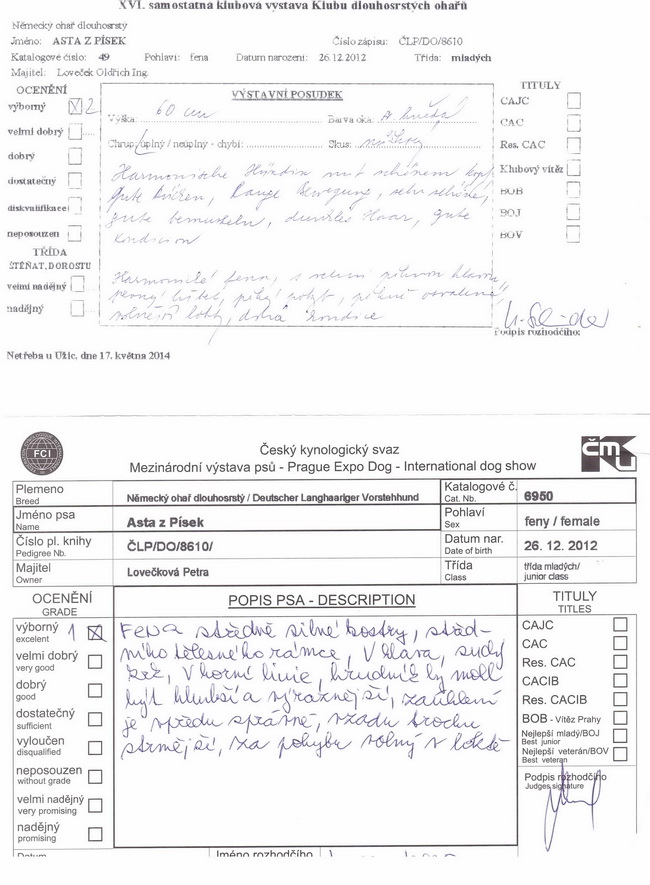 XVI. samostatná klubová výstava Klubu dlouhosrstých ohařů
Německý ohař dlouhosrstý
Jméno: ASTA Z PÍSEK Číslo zápisu: ČLP/DO/8610
Katalogové číslo: 49 Pohlaví: fena Datum narození: 26.12.2012 Třída: mladých
Majitel: Loveček Oldřich Ing.
OCENĚNÍ
výborný X 2
velmi dobrý
dobrý
dostatečný
diskvalifikace
neposouzen
TŘÍDA
ŠTĚŇAT, DOROSTU
velmi nadějný
nadějný
VÝSTAVNÍ POSUDEK
Výška 60 cm Barva oka:
Chrup úplný / neúplný - chybí: Skus:
Harmonische Hündin mit schönem Kopf
gute Rücken, Lange Bewegung, sehr schöne,
gute bemuskeln, dunkles Haar, gute
Kondicion
Harmonická fena, s velmi pěknou hlavou
pevný hřbet, pěkný pohyb, pěkně osvalená
volnější lokty, dobrá kondice
TITULY
CAJC
CAC
Res. CAC
Klubový vítěz
BOB
BOJ
BOV
Podpis rozhodčího:
Netřeba u Užic, dne 17. května 2014
FCI
Český kynologický svaz
Mezinárodní výstava psů - Prague Expo Dog - International dog show
ČMKU
Plemeno
Breed
Německý ohař dlouhosrstý / Deutscher Langhaariger Vorstehhund
Katalogové č.
Cat. Nb.
6950
Jméno psa
Name
Asta z Písek
Pohlaví
Sex
feny / female
Číslo pl. knihy
Pedigree Nb.
ČLP/DO/8610/
Datum nar.
Date of birth
26. 12. 2012
Majitel
Owner
Lovečková Petra
Třída
Class
třída mladých/
junior class
OCENĚNÍ
GRADE
výborný 1 X
excelent
velmi dobrý
very good
dobrý
good
dostatečný
sufficient
vyloučen
disqualified
neposouzen
without grade
velmi nadějný
very promising
nadějný
promising
POPIS PSA - DESCRIPTION
Fena středně silné kostry, střed-
ního tělesného rámce, V hlava, suchý
krk, V horní linie, hrudník by mohl
být hlubší a výraznější, zaúhlení
je vpředu správné, vzadu trochu
strmější, za pohybu volný v loktě
TITULY
TITLES
CAJC
CAC
Res. CAC
CACIB
Res. CACIB
BOB - Vítěz Prahy
Nejlepší mladý/BOJ
Best junior
Nejlepší veterán/BOV
Best veteran
Podpis rozhodčího
Judges signature
Datum
Jméno rozhodčího